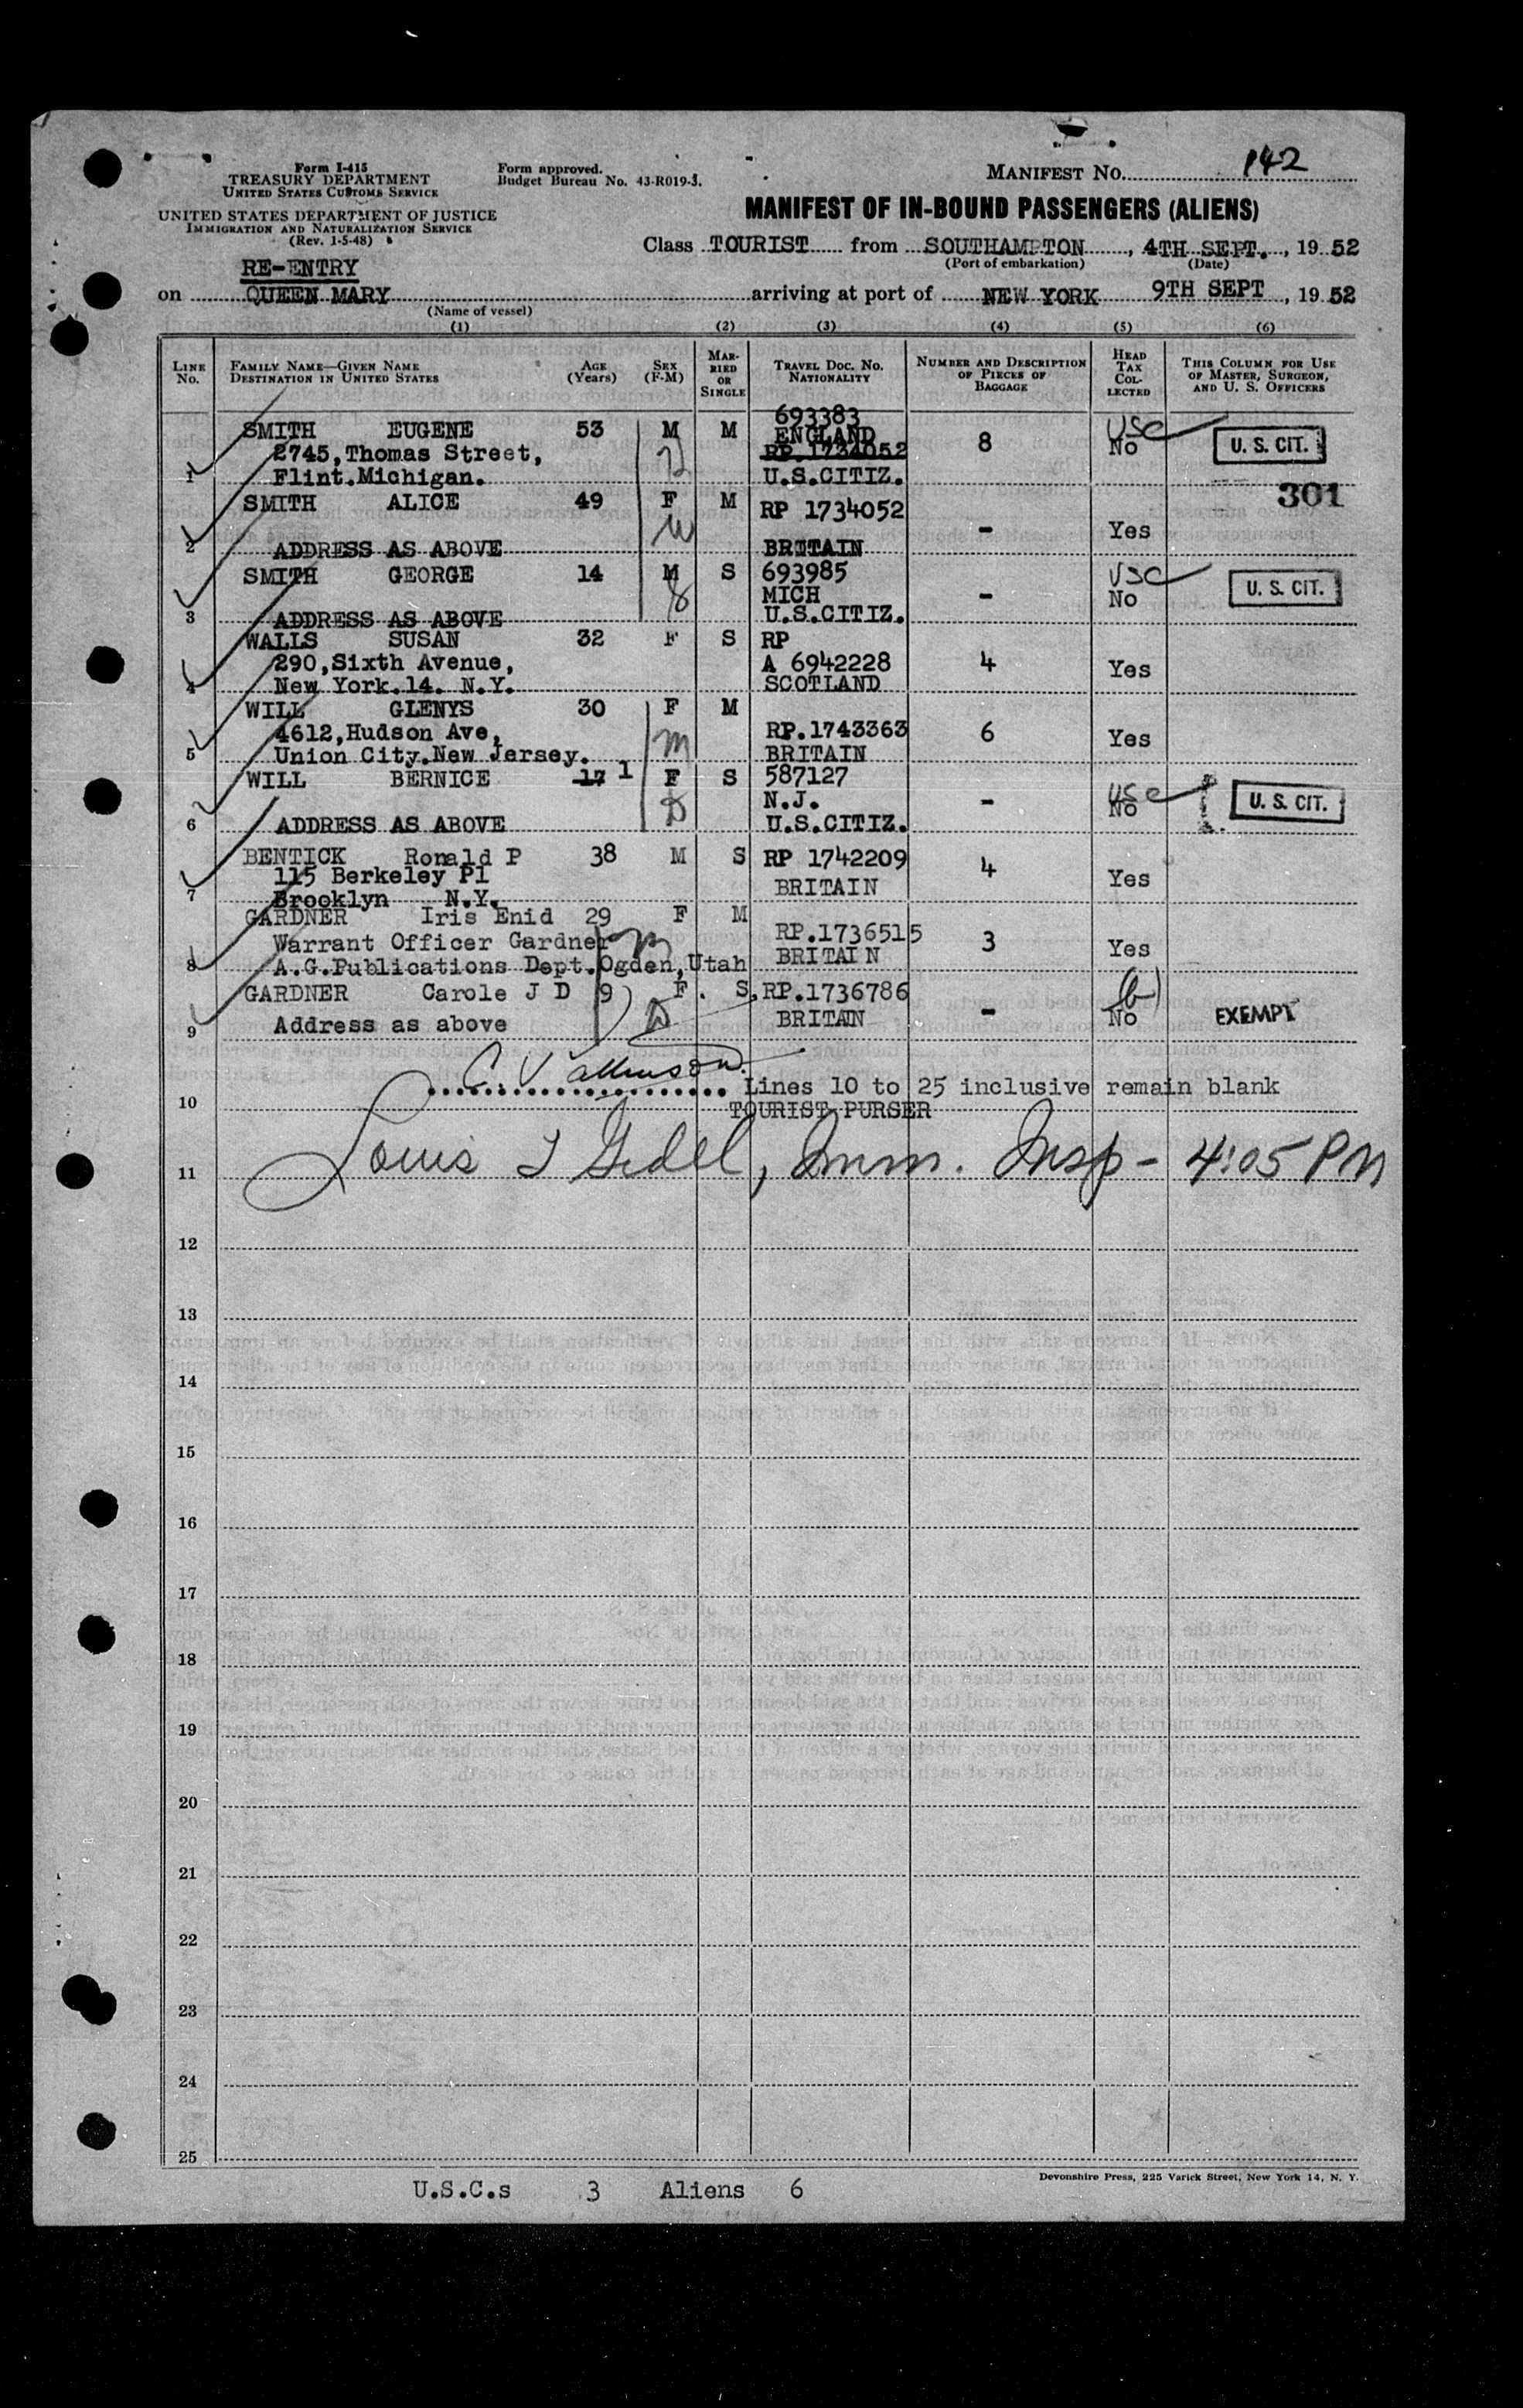 Form I-415
TREASURY DEPARTMENT
UNITED STATES CUSTOMS SERVICE
UNITED STATES DEPARTMENT OF JUSTICE
IMMIGRATION AND NATURALIZATION SERVICE
(Rev. 1-5-48)
Form approved.
Budget Bureau No. 43-R019-3.
MANIFEST No. 142
MANIFEST OF IN-BOUND PASSENGERS (ALIENS)
Class TOURIST from SOUTHAMPTON, 4TH SEPT., 19 52
(Port of embarkation) (Date)
RE-ENTRY
on QUEEN MARY arriving at port of NEW YORK 9TH SEPT, 19 52
(Name of vessel)
(1) (2) (3) (4) (5) (6)
LINE No. FAMILY NAME—GIVEN NAME DESTINATION IN UNITED STATES AGE (Years) SEX (F-M) MARRIED OR SINGLE TRAVEL DOC. NO. NATIONALITY NUMBER AND DESCRIPTION OF PIECES OF BAGGAGE HEAD TAX COLLECTED THIS COLUMN FOR USE OF MASTER, SURGEON, AND U. S. OFFICERS
693383
SMITH EUGENE 53 M M ENGLAND 8 USC No U. S. CIT.
2745,Thomas Street, H RP.1734052
1 Flint.Michigan. U.S.CITIZ.
301
SMITH ALICE 49 F M RP 1734052 - Yes
W
2 ADDRESS AS ABOVE BRITAIN
SMITH GEORGE 14 M S 693985 USC U. S. CIT.
S MICH - No
3 ADDRESS AS ABOVE U.S.CITIZ.
WALLS SUSAN 32 F S RP
290,Sixth Avenue, A 6942228 4 Yes
4 New York.14. N.Y. SCOTLAND
WILL GLENYS 30 F M
4612,Hudson Ave, M RP.1743363 6 Yes
5 Union City.New Jersey. BRITAIN
WILL BERNICE 17 1 F S 587127
D N.J. - USC No U. S. CIT.
6 ADDRESS AS ABOVE U.S.CITIZ.
BENTICK Ronald P 38 M S RP 1742209 4
115 Berkeley Pl BRITAIN Yes
7 Brooklyn N.Y.
GARDNER Iris Enid 29 F M
Warrant Officer Gardner M RP.1736515 3 Yes
8 A.G.Publications Dept.Ogden,Utah BRITAIN
GARDNER Carole J D 9 F. S. RP.1736786 (b)
9 Address as above D BRITAIN - No EXEMPT
C V Atkinson
Lines 10 to 25 inclusive remain blank
10 TOURIST PURSER
11 Louis I Gedel, Imm. Insp - 4:05 PM
12
13
14
15
16
17
18
19
20
21
22
23
24
25
Devonshire Press, 225 Varick Street, New York 14, N. Y.
U.S.C.s 3 Aliens 6